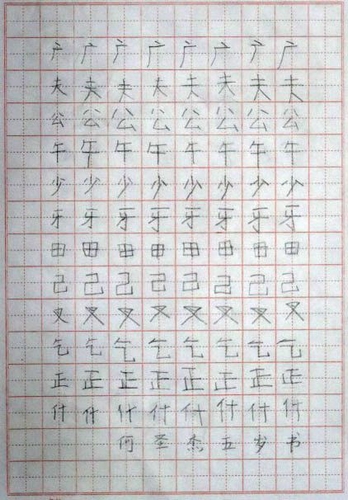 广广广广广广广广
夫夫夫夫夫夫夫夫
公公公公公公公公
午午午午午午午午
少少少少少少少少
牙牙牙牙牙牙牙牙
田田田田田田田田
己己己己己己己己
叉叉叉叉叉叉叉叉
乞乞乞乞乞乞乞乞
正正正正正正正正
什什什什什什什什
何圣杰五岁书